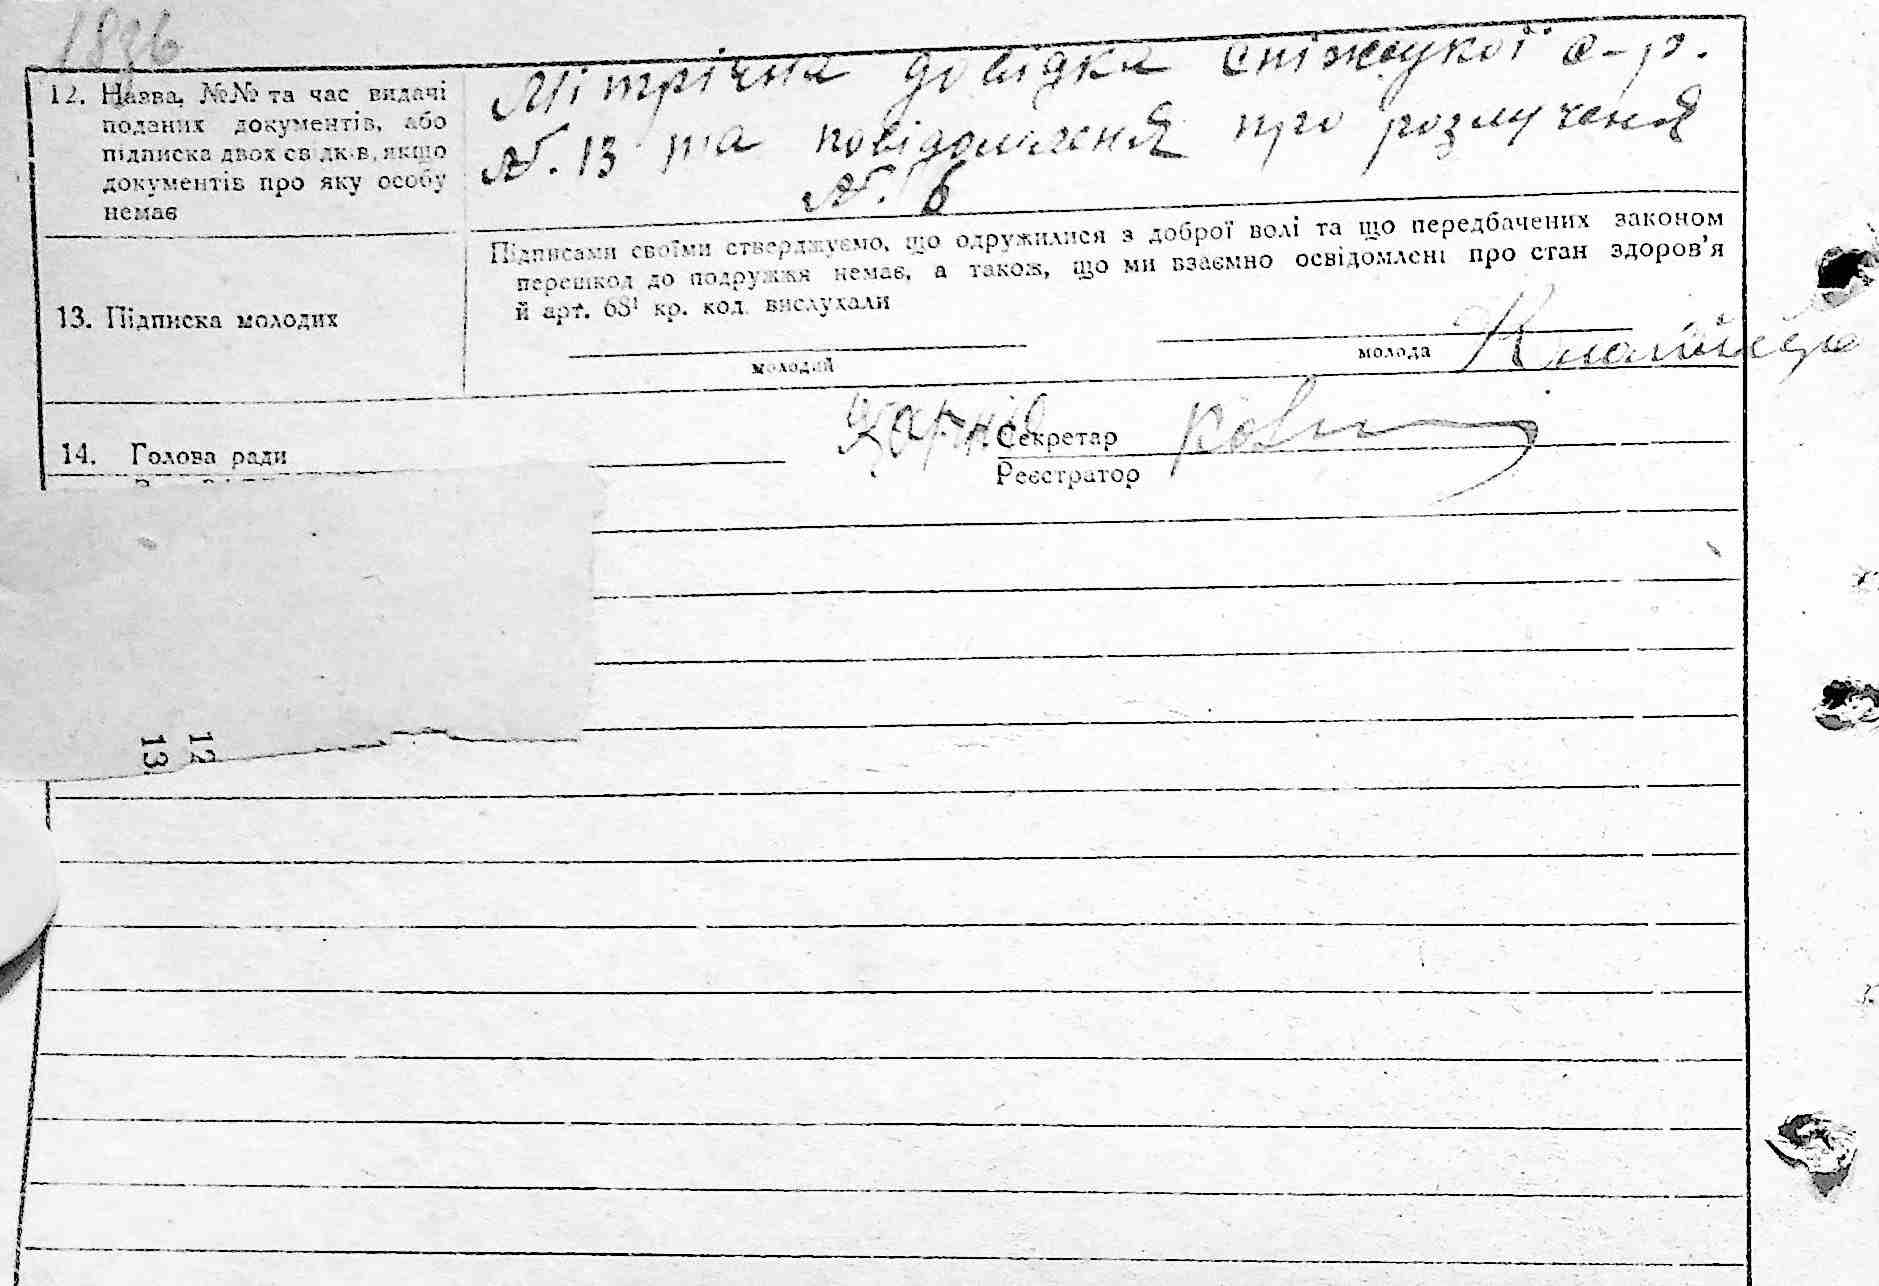 12. Назва, №№ та час видачі
поданих документів, або
підписка двох свідк.в, якщо
документів про яку особу
немає
Мітрічна довідка с-р.
№. 13 та повідомленя про розлученя
№. 6
13. Підписка молодих
Підписами своїми стверджуємо, що одружилися з доброї волі та що передбачених законом
перешкод до подружжя немає, а також, що ми взаємно освідомлені про стан здоров’я
й арт. 68¹ кр. код. вислухали
молодий
молода
14. Голова ради
Секретар
Реєстратор
12
13.